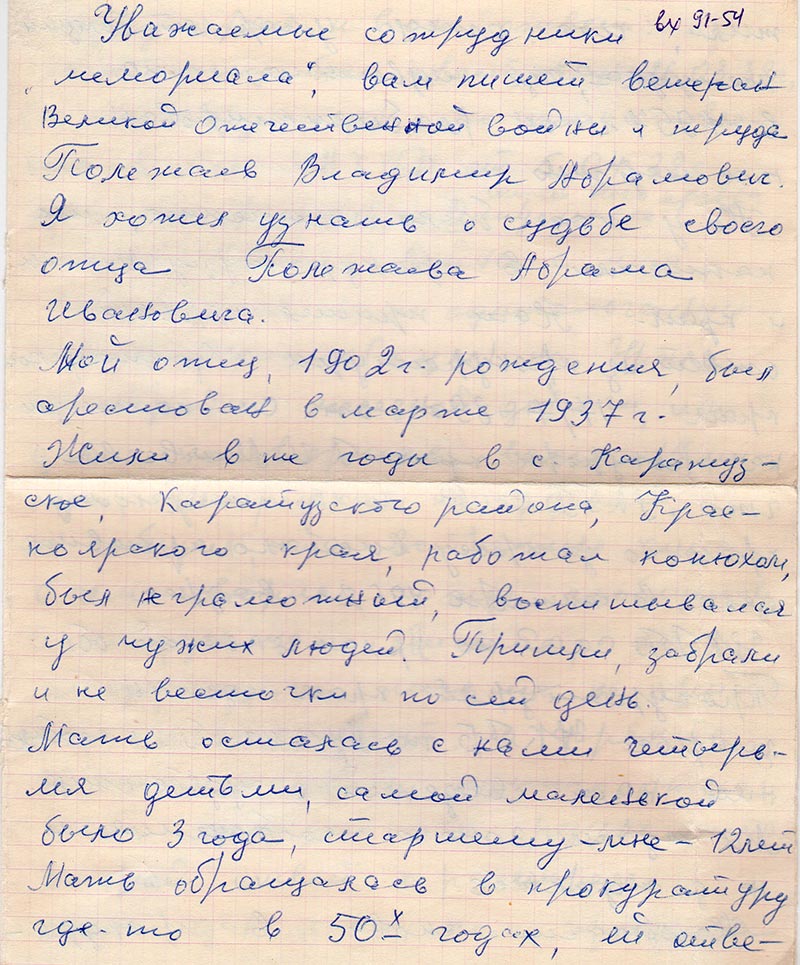 вх 91-54
Уважаемые сотрудники
„мемориала“, вам пишет ветеран
Великой Отечественной войны и труда
Полежаев Владимир Абрамович.
Я хотел узнать о судьбе своего
отца Полежаева Абрама
Ивановича.
Мой отец, 1902 г. рождения, был
арестован в марте 1937 г.
Жили в те годы в с. Каратуз-
ское, Каратузского района, Крас-
ноярского края, работал конюхом,
был неграмотный, воспитывался
у чужих людей. Пришли, забрали
и не весточки по сей день.
Мать осталась с нами четырь-
мя детьми, самой маленькой
было 3 года, старшему-мне-12 лет
Мать обращалась в прокуратуру
где-то в 50х годах, ей отве-